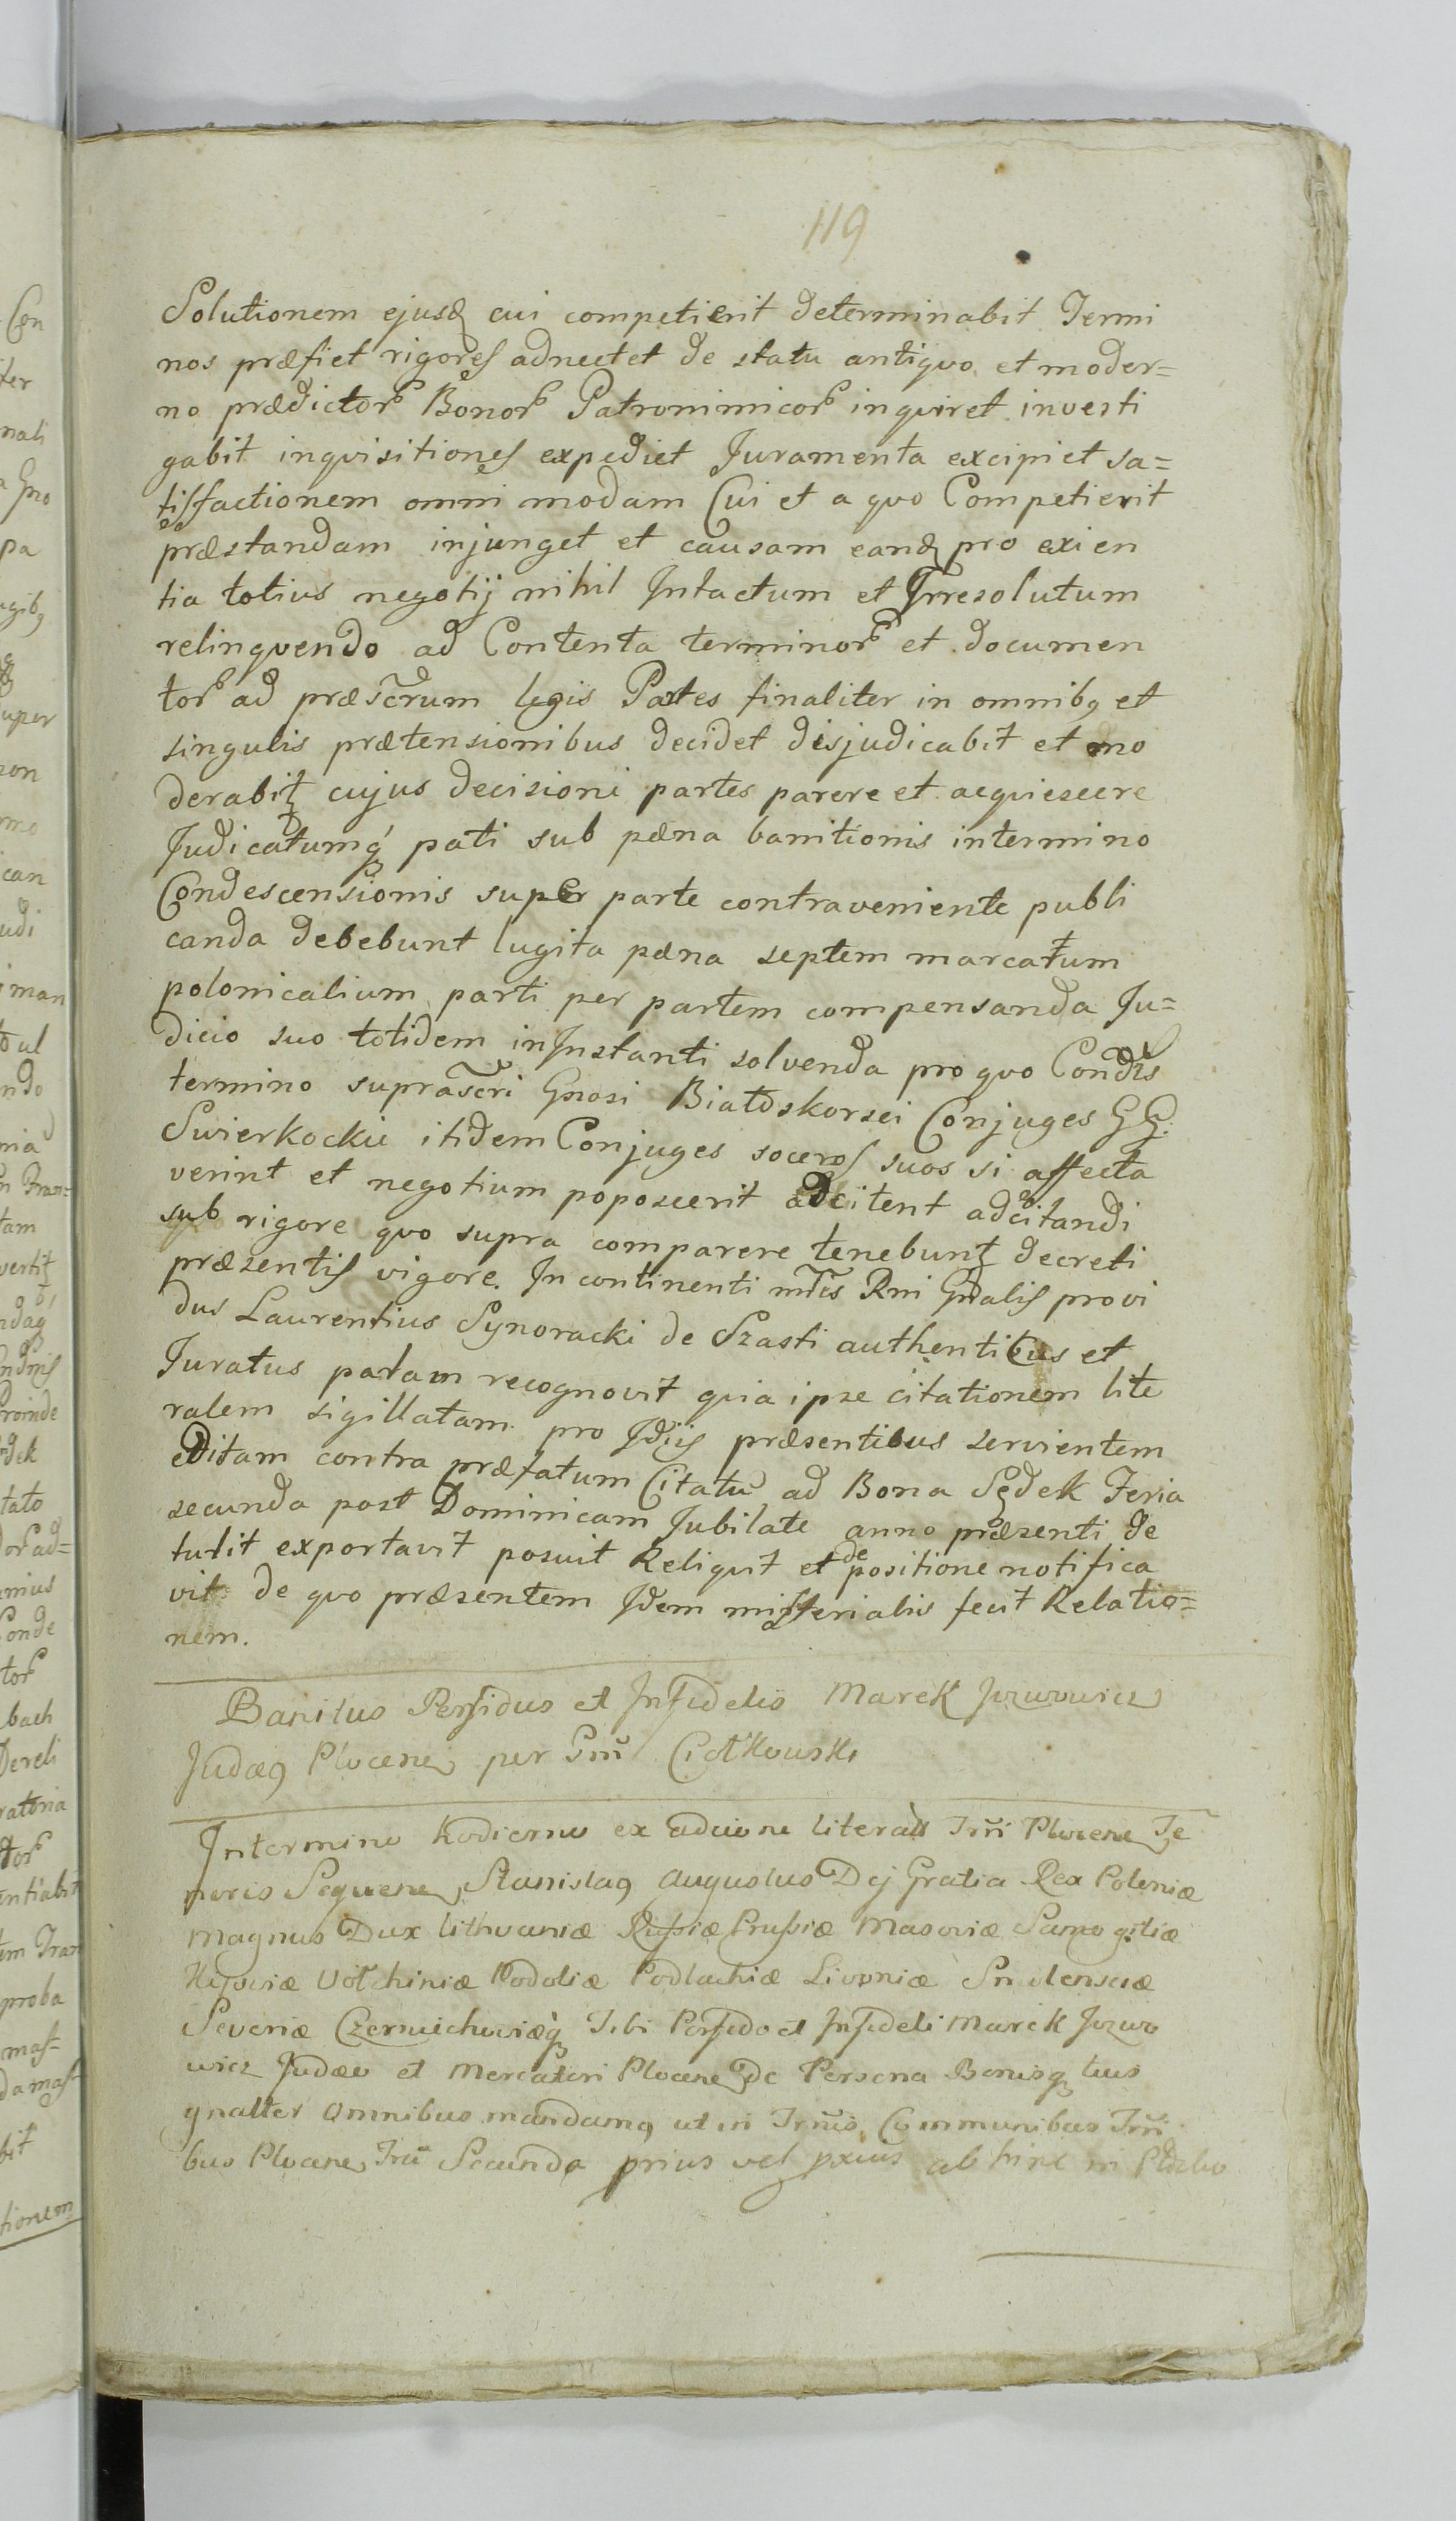 119
Solutionem ejusd cui competierit determinabit Termi
nos præfiet rigores adnectet de statu antiquo et moder=
no prædictor Bonor Patronimicor inquiret investi
gabit inquisitiones expediet Juramenta excipiet sa=
tisfactionem omni modam Cui et a quo Competierit
præstandam injunget et causam eand pro exien
tia totius negotij nihil Intactum et Irresolutum
relinquendo ad Contenta terminor et documen
tor ad præscrum legis Partes finaliter in omnibq et
singulis prætensionibus decidet disjudicabit et mo
derabit cujus decisioni partes parere et acquiescere
Judicatumq pati sub pæna banitionis intermino
Condescensionis super parte contraveniente publi
canda debebunt lugita pæna septem marcatum
polonicalium parti per partem compensanda Ju=
dicio suo totidem inInstanti solvenda pro quo Condis
termino suprascri Gnosi Białoskorsci Conjuges GG.
Swierkockie itidem Conjuges soceros suos si affecta
verint et negotium poposcerit adcitent adcitandi
sub rigore quo supra comparere tenebunt decreti
præsentis vigore. In continenti mtris Rni Gnalis provi
dus Laurentius Synoracki de Szasti authenticus et
Juratus palam recognovit quia ipse citationem lite
ralem sigillatam pro Jdiis præsentibus servientem
editam contra præfatum Citatu ad Bona Sędek Feria
secunda post Dominicam Jubilate anno præsenti de
tulit exportavit posuit Reliquit et de positione notifica
vit de quo præsentem Idem misterialis fecit Relatio=
nem.
Banitus Perfidus et Infidelis Marek Jozwowicz
Judæq Plocen per Gm Ciołkowski
Intermino hodierno ex adcione literali Trri Plocen Te
noris Sequen Stanislaq Augustus Dej Gratia Rex Poloniæ
Magnus Dux lithvaniæ Rußiæ Prußiæ Masoviæ Samogitiæ
Kijoviæ Volhiniæ Podoliæ Podlachiæ Livoniæ Smolensciæ
Severiæ Czerniechoviæq Tibi Perfido et Infideli Marek Jozwo
wicz Judæo et Mercatori Plocen de Persona Bonisq tuis
gnalter omnibus mandamq ut in Trmis Communibus Trri
bus Plocen Fria Secunda prius vel pxius ab hinc in